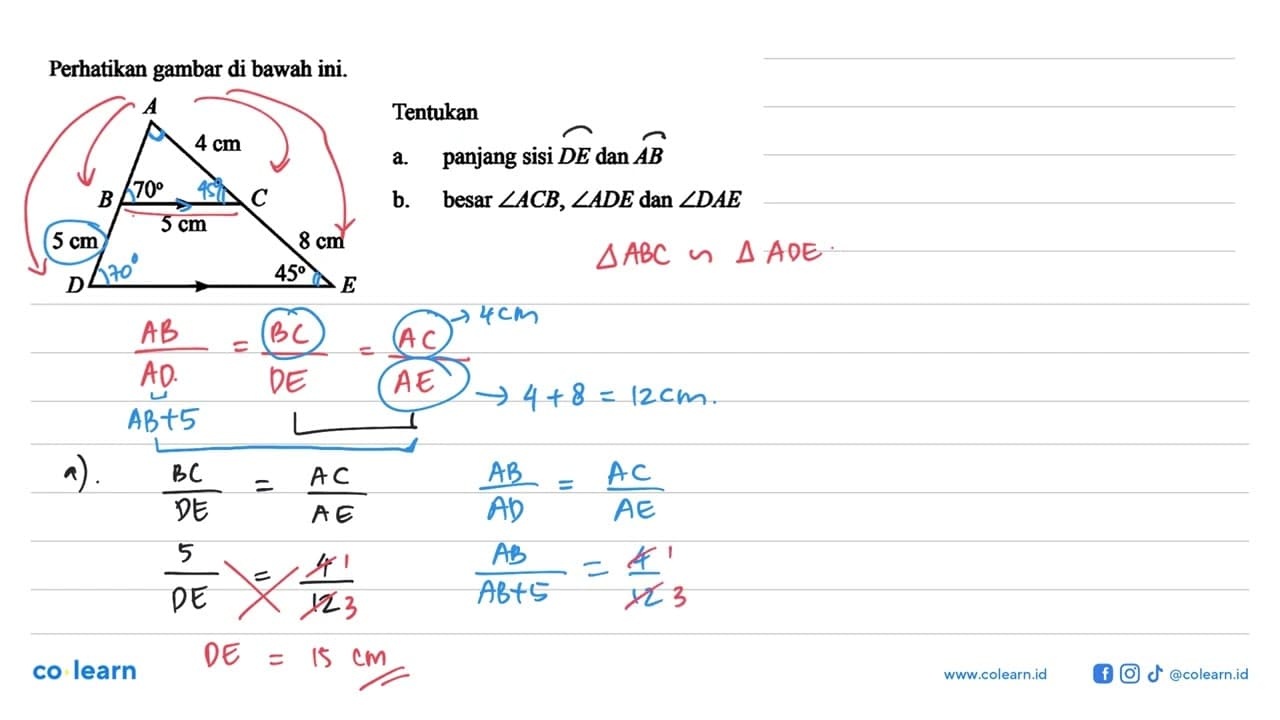 Perhatikan gambar di bawah ini.
A
4 cm
B 70° 45° C
5 cm
5 cm
8 cm
D 70° 45° E
Tentukan
a. panjang sisi DE dan AB
b. besar ∠ACB, ∠ADE dan ∠DAE
△ ABC ∽ △ ADE
AB/AD = BC/DE = AC/AE
→ 4 cm
→ 4 + 8 = 12 cm.
AB+5
a). BC/DE = AC/AE
AB/AD = AC/AE
5/DE = 4/12 1 3
AB/AB+5 = 4/12 1 3
DE = 15 cm
co learn
www.colearn.id
@colearn.id